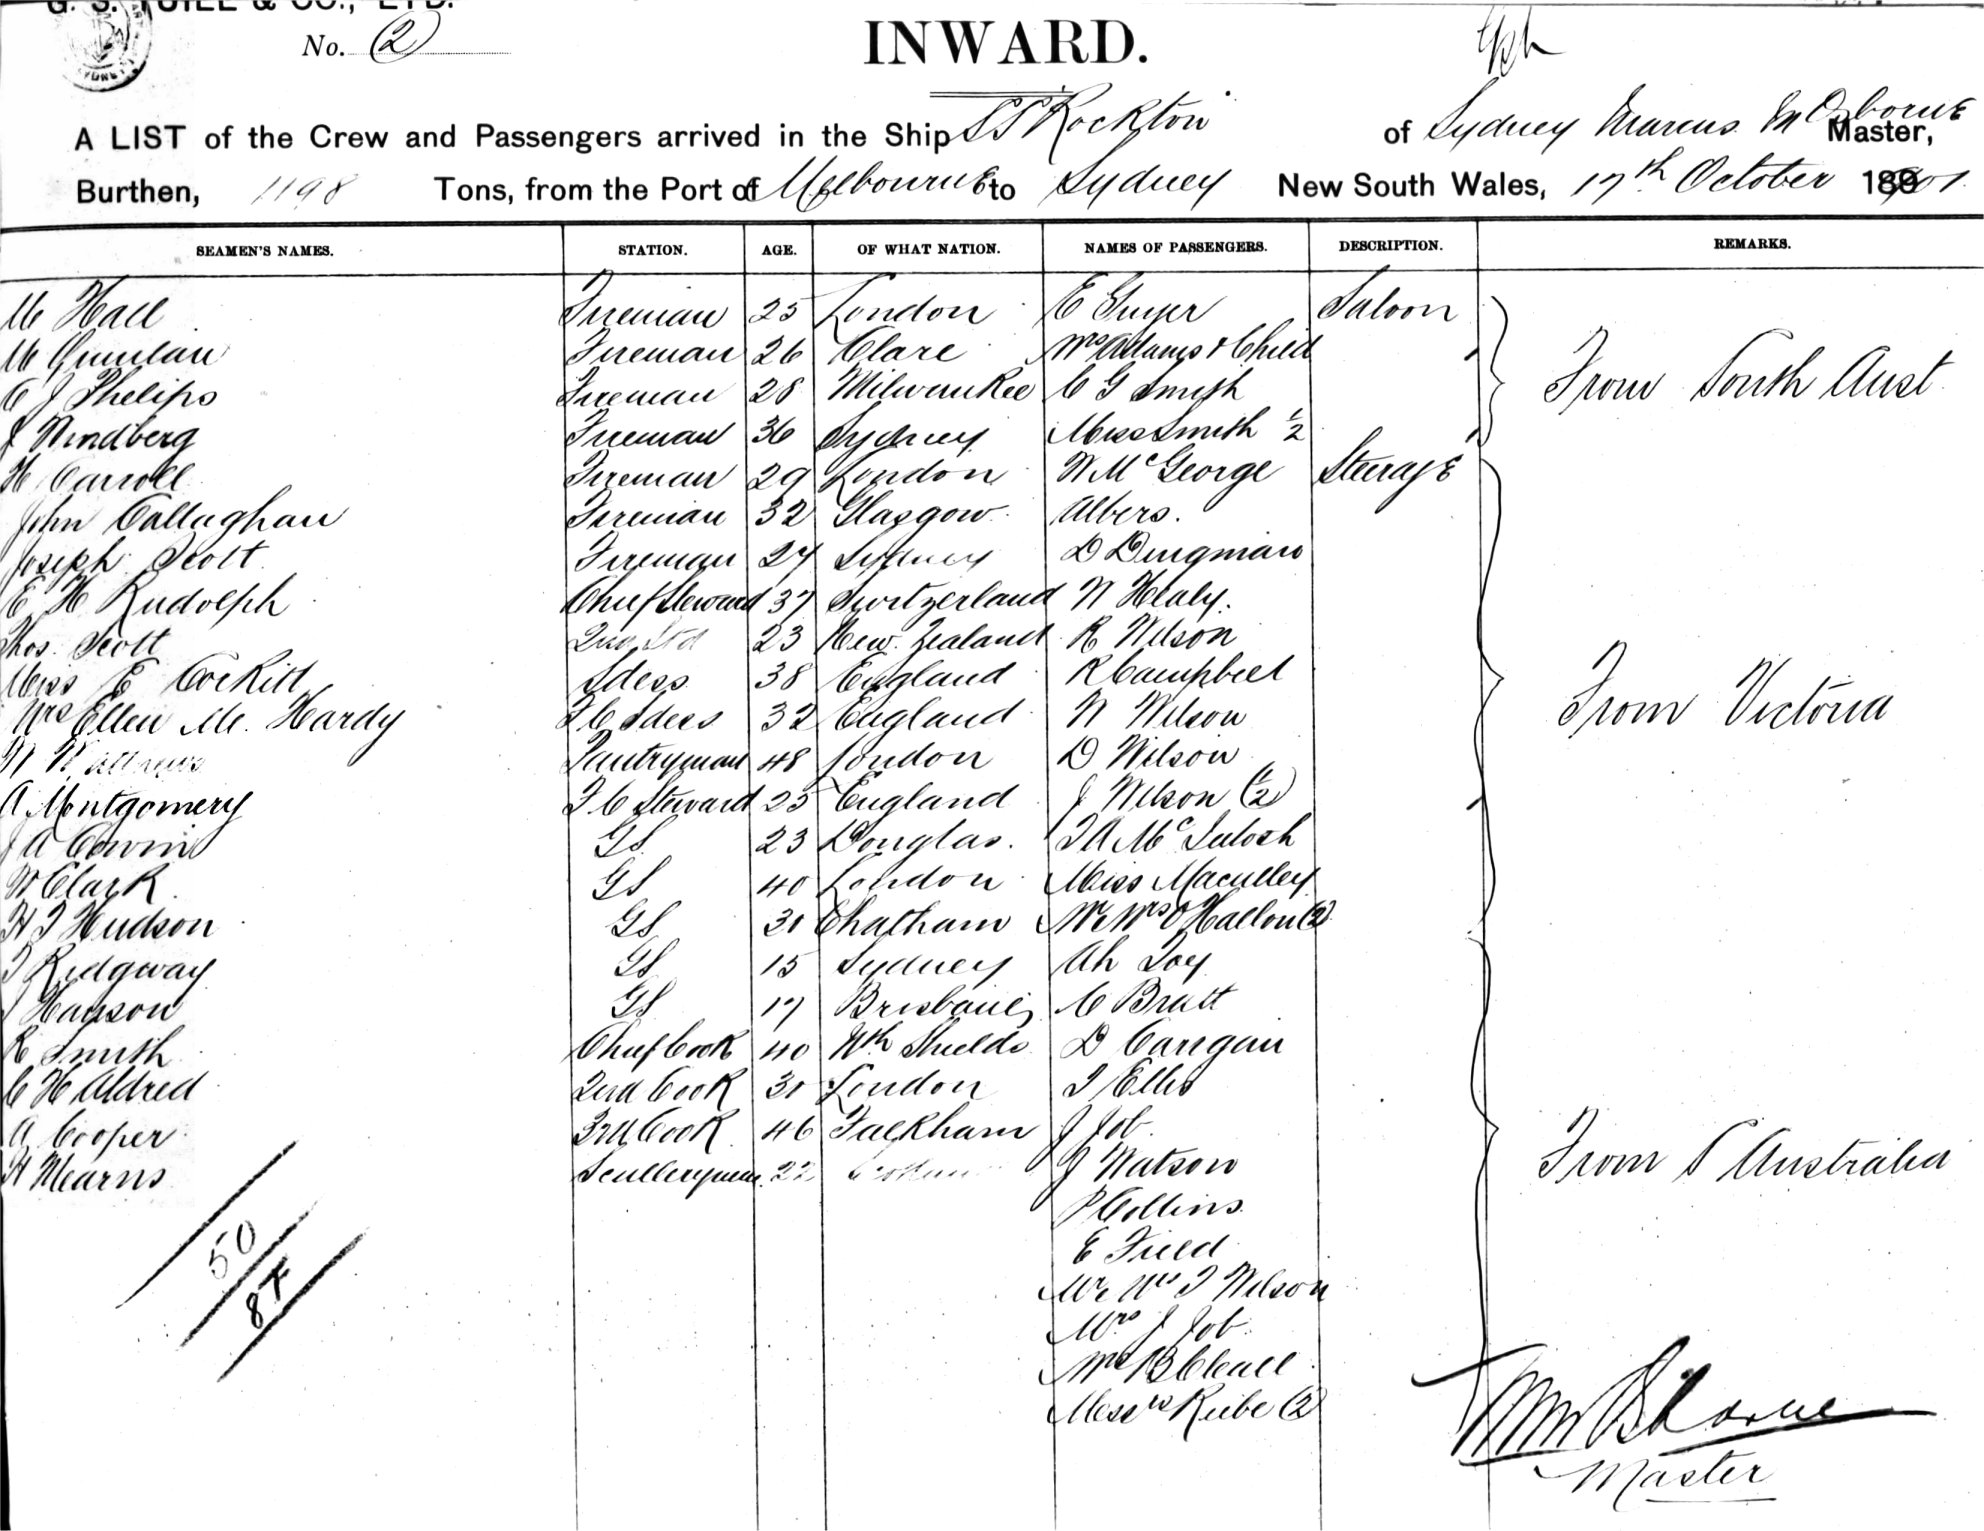 G. S. YUILL & CO., LTD.
No. (2)
INWARD.
A LIST of the Crew and Passengers arrived in the Ship SS Rockton of Sydney Marcus M Osborne Master,
Burthen, 1198 Tons, from the Port of Melbourne to Sydney New South Wales, 17th October 1901
SEAMEN'S NAMES. STATION. AGE. OF WHAT NATION. NAMES OF PASSENGERS. DESCRIPTION. REMARKS.
M Hall Fireman 25 London E Saloon
M Quinlan Fireman 26 Clare Mrs Adams & Child
C J Phelips Fireman 28 Milwaukee C G Smith From South Aust
J Windberg Fireman 36 Sydney Miss Smith 1/2
H Carroll Fireman 29 London W McGeorge Steerage
John Callaghan Fireman 32 Glasgow Albers.
Joseph Scott Fireman 27 Sydney D Dingman
E H Rudolph Chief Steward 37 Switzerland W Healy.
Thos Scott 2nd Std 23 New Zealand R Wilson
Miss E Corkill Sdess 38 England R Campbell
Mrs Ellen M. Hardy F C Sdess 32 England W Wilson From Victoria
W Pantryman 48 London D Wilson
A Montgomery F C Steward 25 England J Wilson (1/2)
J A Corwin GS 23 Douglas. T A McIntosh
W Clark GS 40 London Miss Maculley
H J Hudson GS 31 Chatham Mr Mrs O'Hallon (2)
T Ridgway GS 15 Sydney Ah Toy
J Hanson GS 17 Brisbane C Bratt
R Smith Chief Cook 40 Nth Shields D Carrigan
C H Aldred 2nd Cook 31 London J Ellis
A Cooper 3rd Cook 46 Fackham J Job From S Australia
H Mearns Sculleryman 22 J Watson
P Collins
E Field
Mr Mrs T Wilson
Mrs J Job
Mrs B Cleall
Messrs Riebe (2)
50
84
MM Osborne
Master